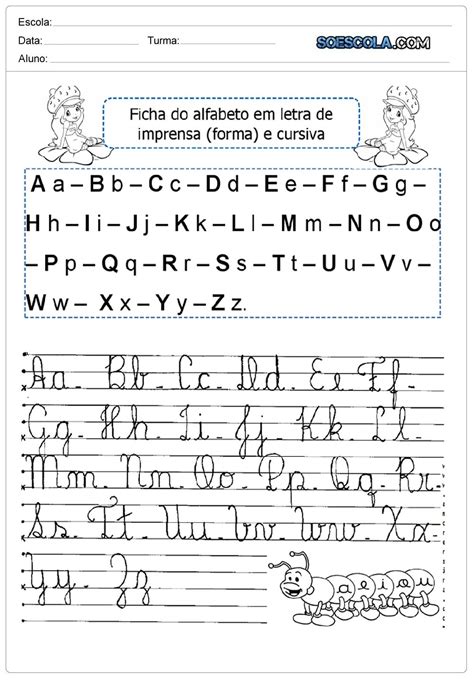 Escola:
Data: Turma:
SOESCOLA.COM
Aluno:
Ficha do alfabeto em letra de
imprensa (forma) e cursiva
A a – B b – C c – D d – E e – F f – G g –
H h – I i – J j – K k – L l – M m – N n – O o
– P p – Q q – R r – S s – T t – U u – V v –
W w – X x – Y y – Z z.
Aa - Bb - Cc - Dd - Ee - Ff -
Gg - Hh - Ii - Jj - Kk - Ll -
Mm - Nn - Oo - Pp - Qq - Rr -
Ss - Tt - Uu - Vv - Ww - Xx -
Yy - Zz
a e i o u